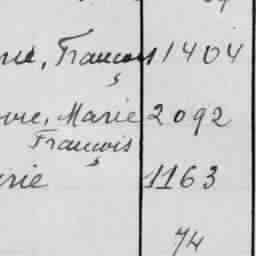 rie, François 1404
vre, Marie 2092
François
arie 1163
74